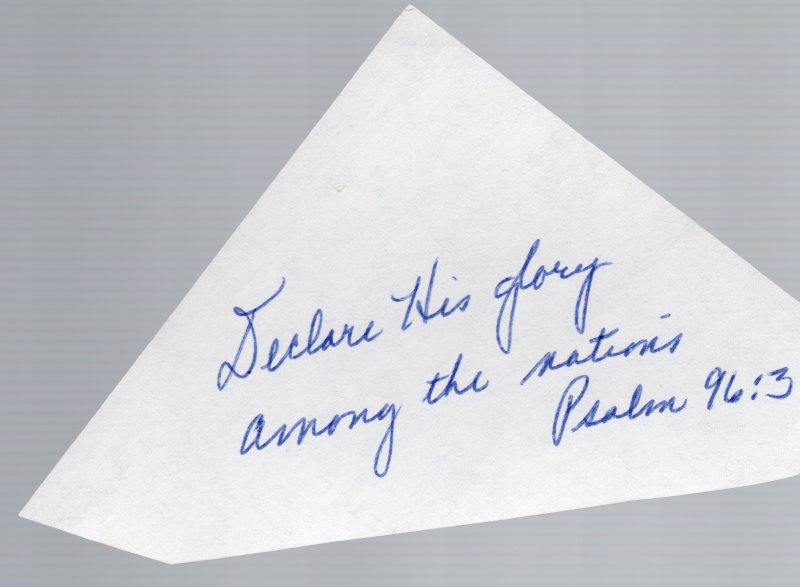 Declare His glory
among the nations
Psalm 96:3